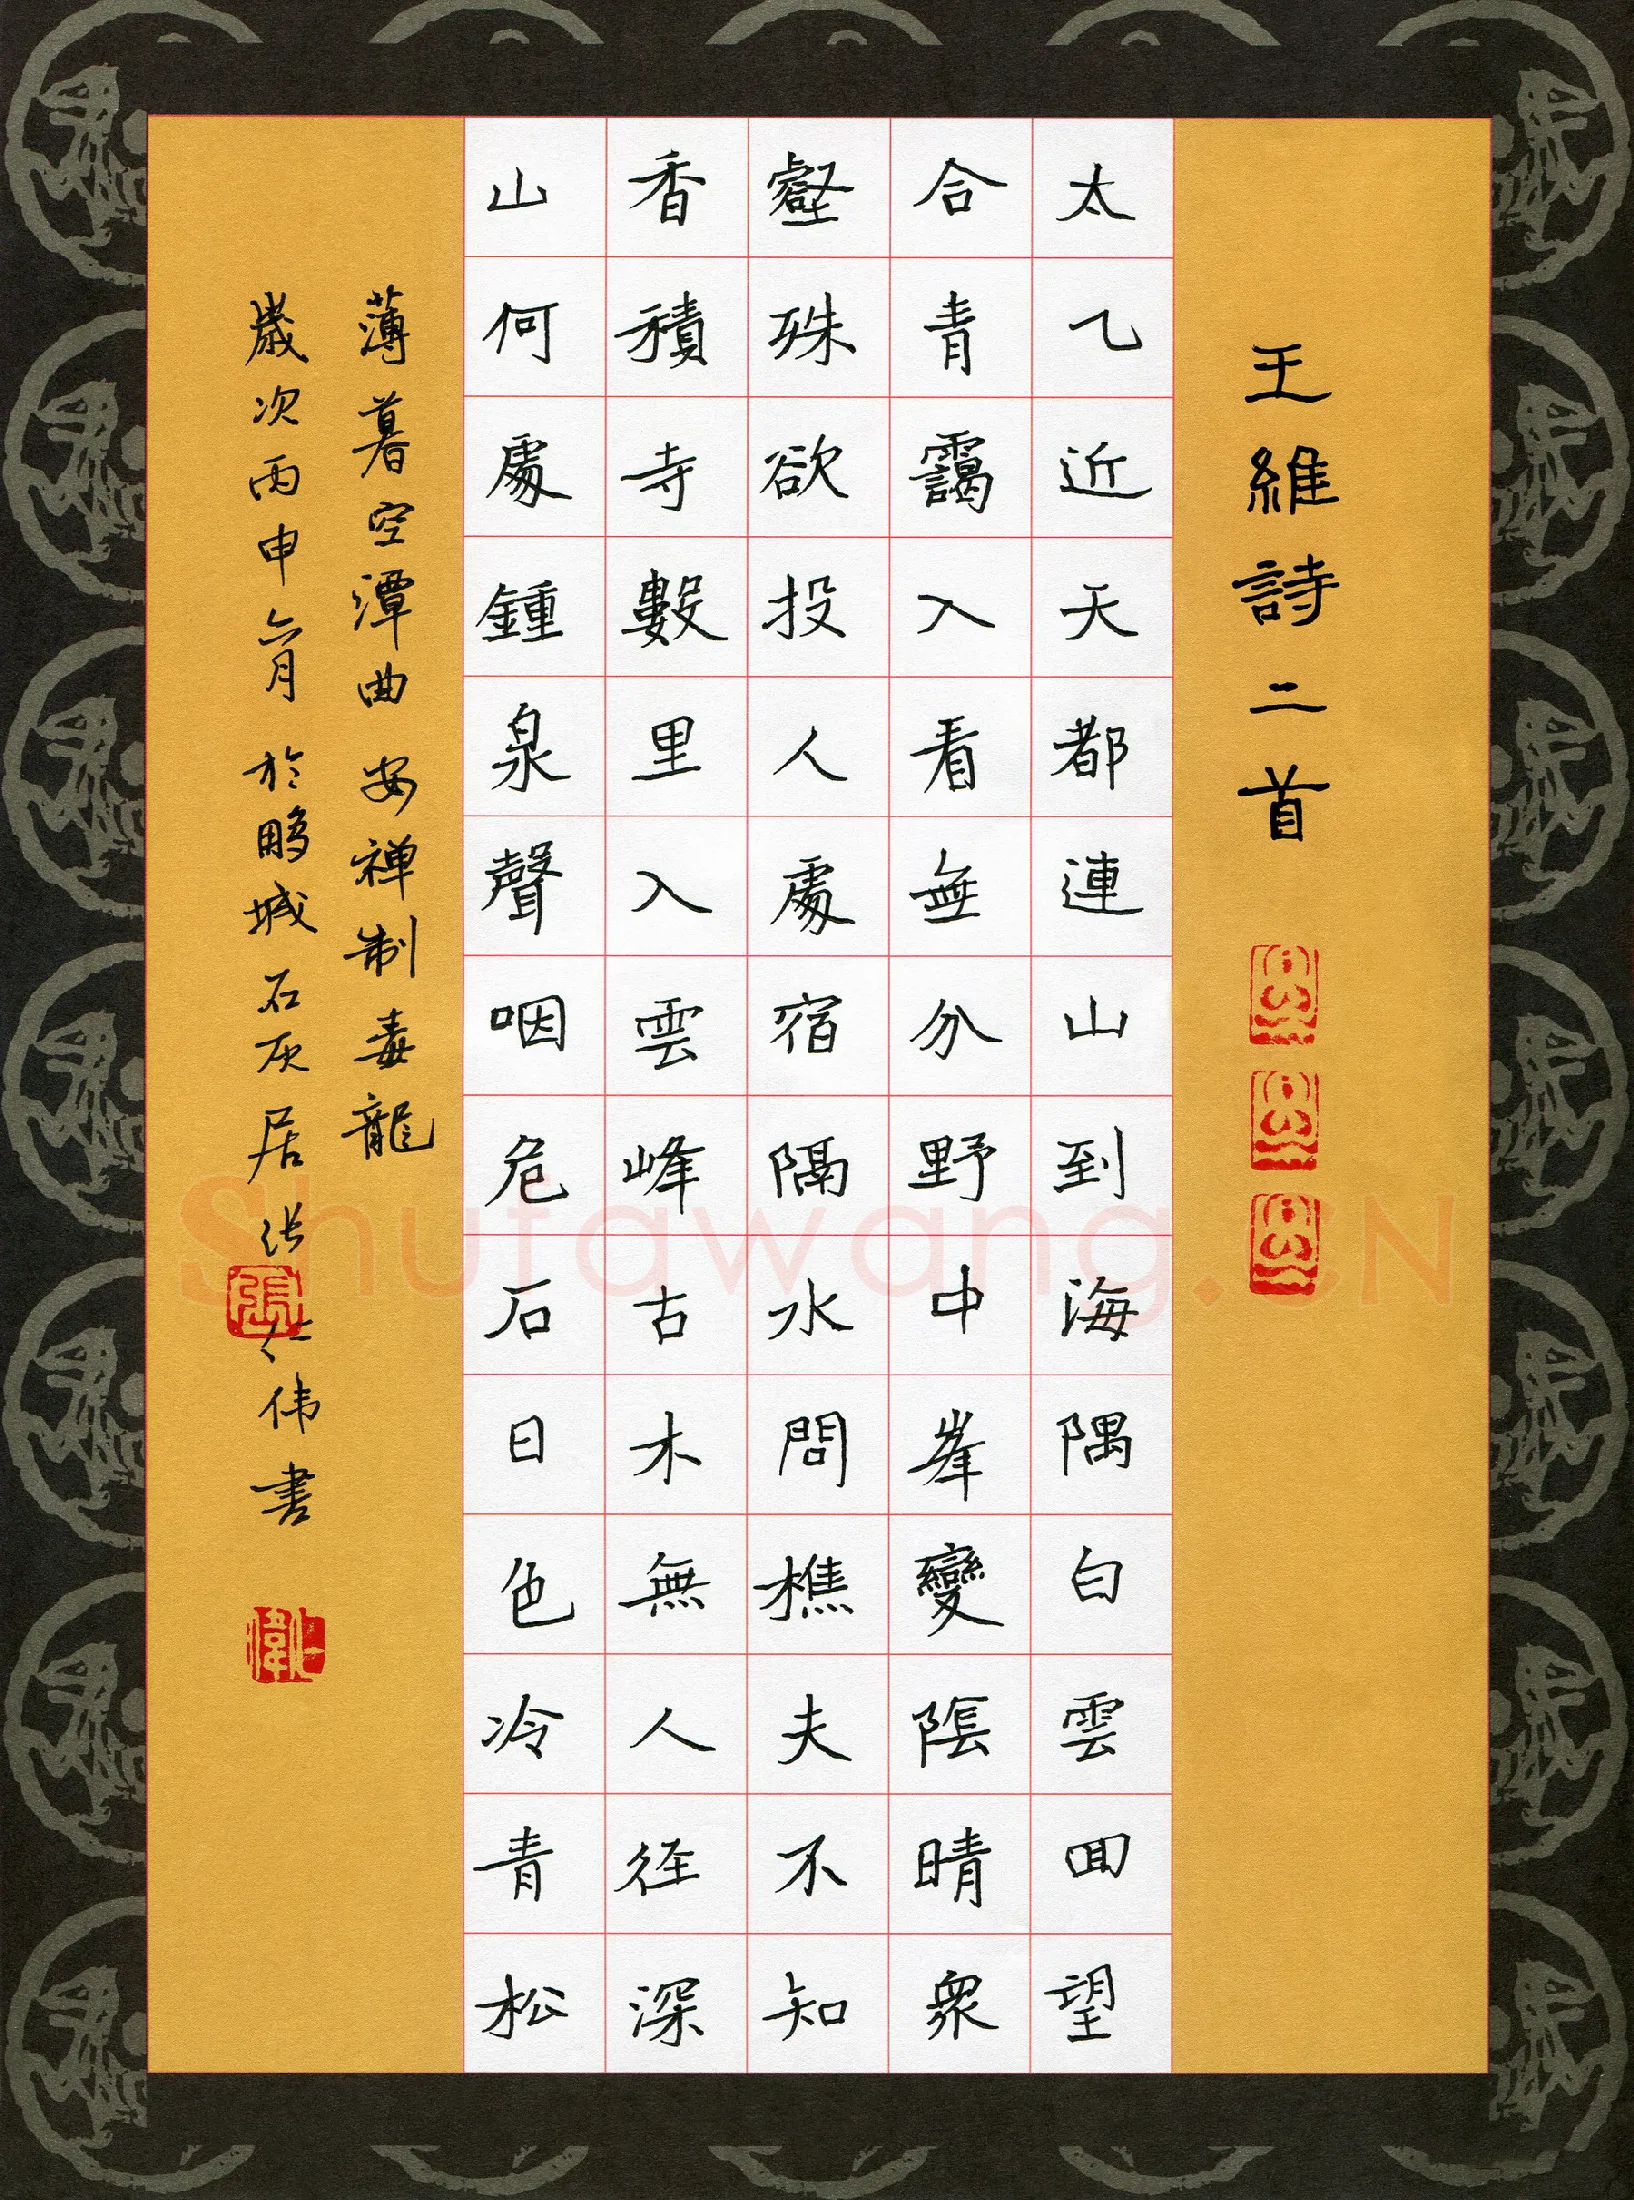 王維詩二首
太乙近天都連山到海隅白雲回望
合青靄入看無分野中峯變陰晴衆
壑殊欲投人處宿隔水問樵夫不知
香積寺數里入雲峰古木無人徑深
山何處鍾泉聲咽危石日色冷青松
薄暮空潭曲安禅制毒龍
歲次丙申六月於鹏城石灰居张仁伟書
張
Shufawang.CN